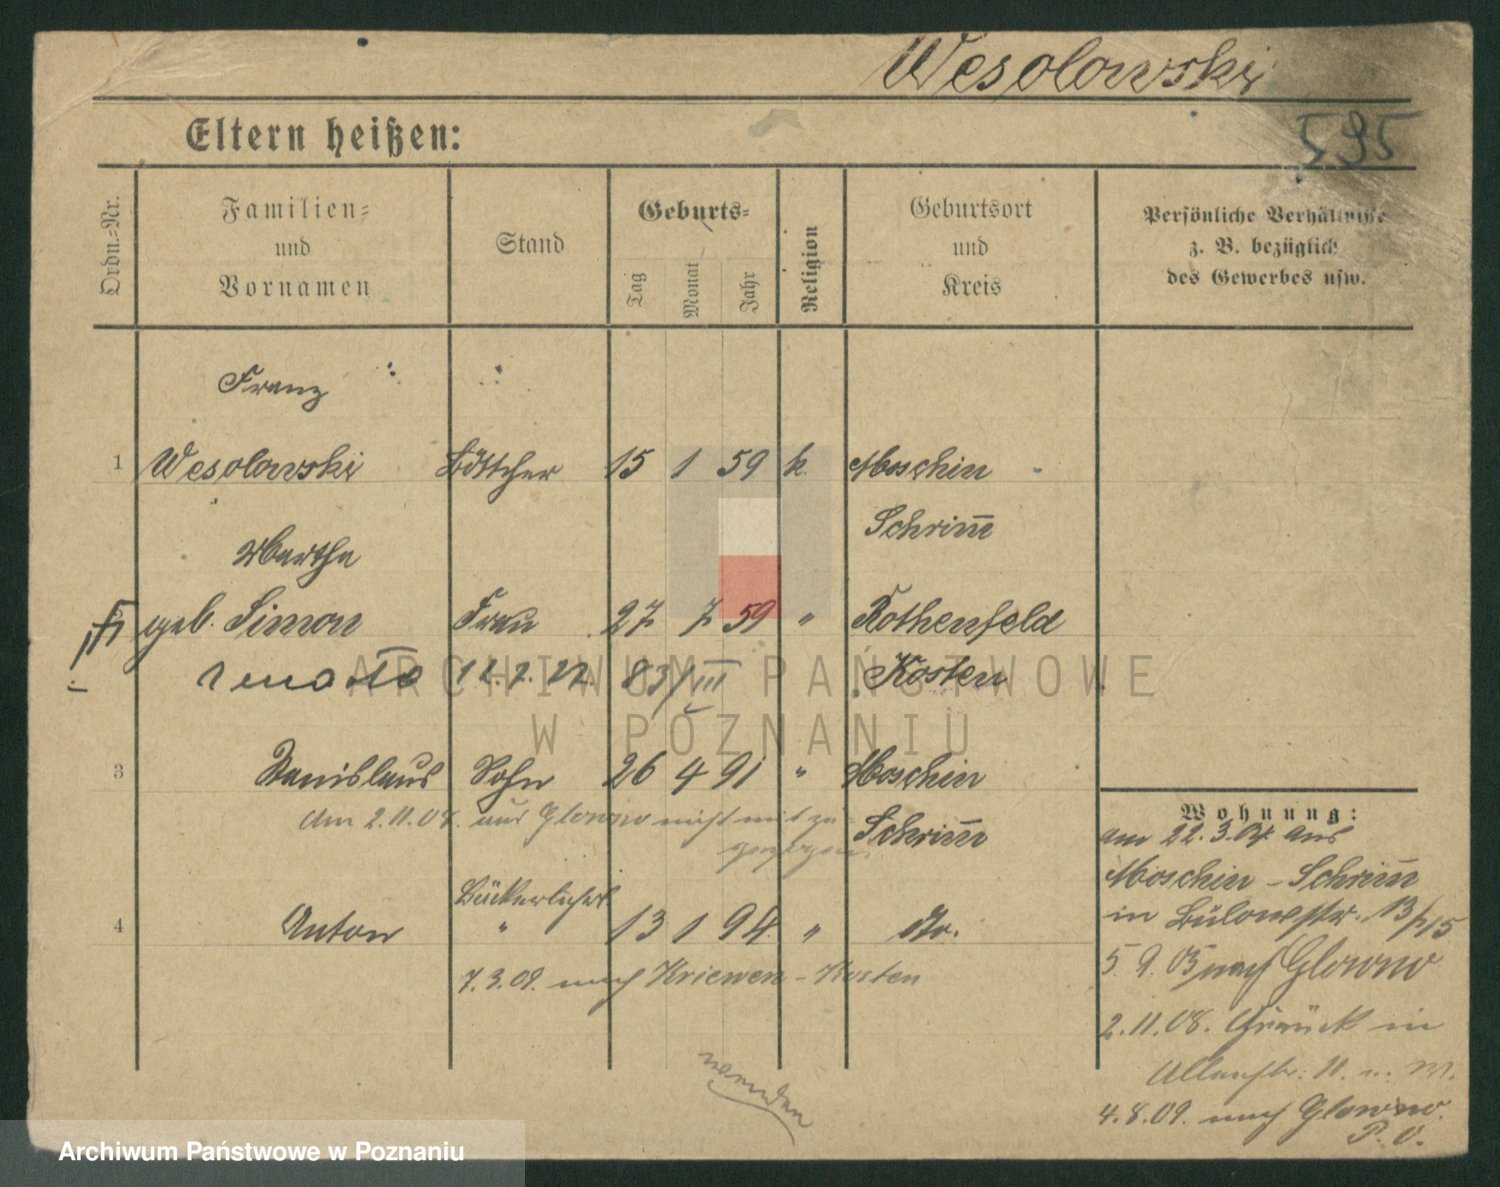 Wesolowski
Eltern heißen:
595
Ordn.-Nr.
Familien-
und
Vornamen
Stand
Geburts-
Tag
Monat
Jahr
Religion
Geburtsort
und
Kreis
Persönliche Verhältnisse
z. B. bezüglich
des Gewerbes usw.
Franz
1 Wesolowski Böttcher 15 1 59 k. Moschin
Schrim̅
Martha
geb. Simon Frau 27 7 59 " Rothenfeld
zmarła 12.2.22. 83/III Kosten
3 Stanislaus Sohn 26 4 91 " Moschin
Am 2.11.08. aus Glowno nicht mit zu-
gezogen.
Schrim̅
Bäckerlehrl.
4 Anton " 13 1 94 " Do.
7.3.09. nach Kriewen - Kosten
wenden
Wohnung:
am 22.3.04. aus
Moschin - Schrim̅
in Bülowstr. 13/15
5.9.05 nach Glowno
2.11.08. Zurück in
11
4.8.09. nach Glowno.
P. O.
ARCHIWUM PAŃSTWOWE
W POZNANIU
Archiwum Państwowe w Poznaniu